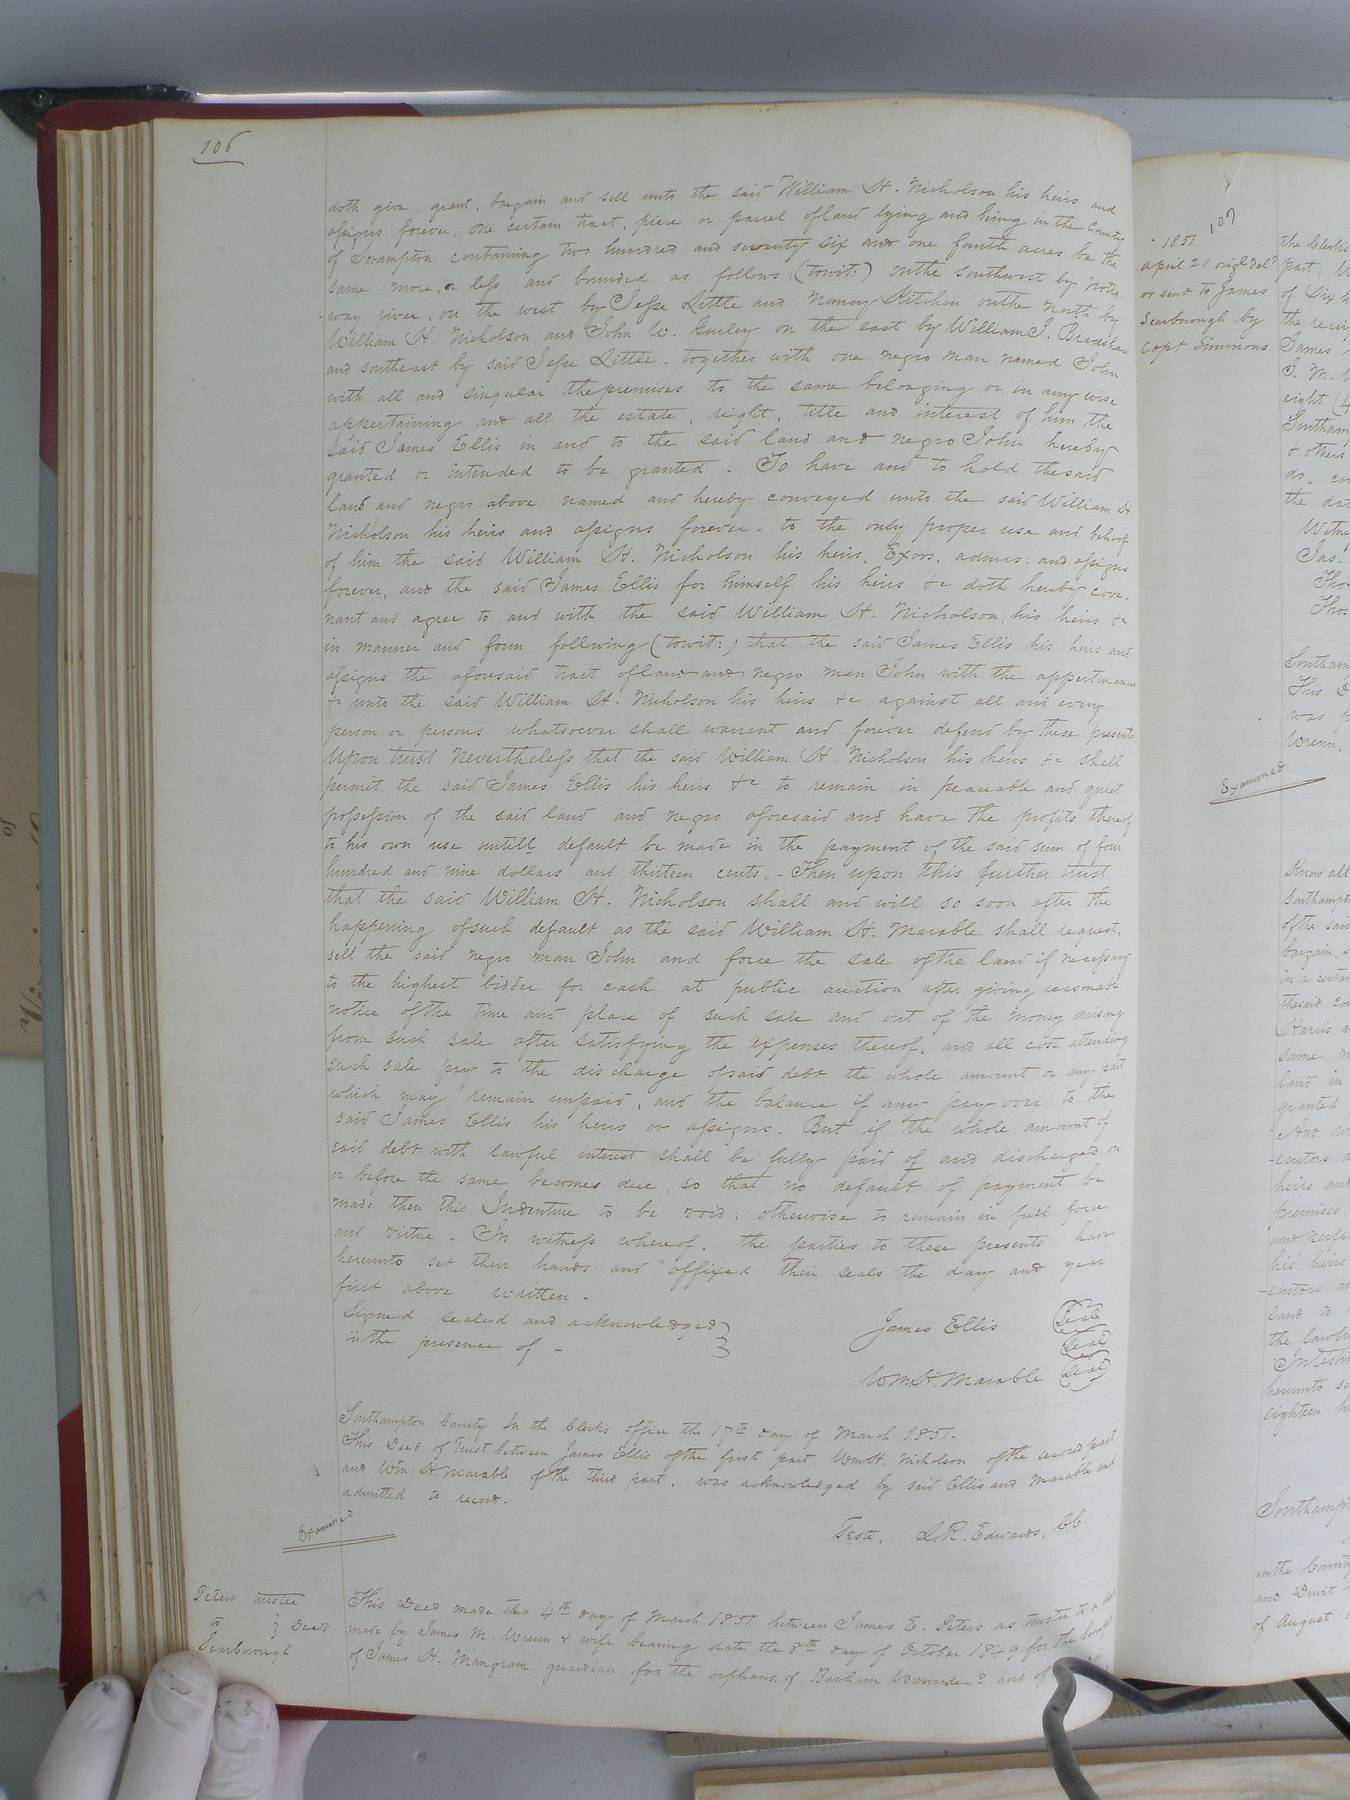 106
doth give, grant, bargain and sell unto the said William H. Nicholson his heirs and
assigns forever, one certain tract, piece or parcel of land lying and being in the County
of Southampton containing two hundred and seventy six and one fourth acres be the
same more or less and bounded as follows (towit:) on the southwest by Notto-
-way river, on the west by Jesse Little and Nancy Kitchen on the North by
William H. Nicholson and John W. Gurley on the east by William J. Bradshaw
and southeast by said Jesse Little. together with one negro man named John
with all and singular the premises to the same belonging or in any wise
appertaining and all the estate, right, title and interest of him the
said James Ellis in and to the said land and negro John hereby
granted or intended to be granted. To have and to hold the said
land and negro above named and hereby conveyed unto the said William H
Nicholson his heirs and assigns forever. to the only proper use and behoof
of him the said William H. Nicholson his heirs, Exors. admrs: and assigns
forever, and the said James Ellis for himself his heirs &c doth hereby cove-
nant and agree to and with the said William H. Nicholson, his heirs &c
in manner and form following (towit:) that the said James Ellis his heirs and
assigns the aforesaid tract of land and negro man John with the appertinances
&c unto the said William H. Nicholson his heirs &c against all and every
person or persons whatsoever shall warrant and forever defend by these presents.
Upon trust Nevertheless that the said William H. Nicholson his heirs &c shall
permit the said James Ellis his heirs &c to remain in peaceable and quiet
possession of the said land and negro aforesaid and have the profits thereof
to his own use untill default be made in the payment of the said sum of four
hundred and nine dollars and thirteen cents. - Then upon this further trust
that the said William H. Nicholson shall and will so soon after the
happening of such default as the said William H. Marable shall request,
sell the said negro man John and force the sale of the land if necessary
to the highest bidder for cash at public auction after giving reasonable
notice of the time and place of such sale and out of the money arising
from such sale after satisfying the expenses thereof, and all cost attending
such sale pay to the discharge of said debt the whole amount or any part
which may remain unpaid, and the balance if any pay over to the
said James Ellis his heirs or assigns. But if the whole amount of
said debt with lawful interest shall be fully paid of and discharged on
or before the same becomes due, so that no default of payment be
made then this Indenture to be void; otherwise to remain in full force
and virtue. In witness whereof, the parties to these presents have
hereunto set their hands and affixed their seals the day and year
first above written.
Signed sealed and acknowledged }
in the presence of -
James Ellis (Seal)
(Seal)
Wm H. Marable (Seal)
Southampton County In the Clerk's office the 17th day of March 1851.
This Deed of Trust between James Ellis of the first part Wm H. Nicholson of the second part
and Wm: H. Marable of the third part, was acknowledged by said Ellis and Marable and
admitted to record.
Teste, L. R. Edwards, CC.
Examined
Peters trustee
to } Deed
Scarborough
This Deed made this 4th day of March 1851 between James E. Peters as trustee to a
made by James M. Wrenn & wife bearing date the 8th day of October 1849 for the benefit
of James H. Mangram guardian for the orphans of Barham and of
107
1851
April 21 origl deld
or sent to James
Scarborough by
Capt Simmons
the Clerks
part,
of Six
the
James
J. M.
eight
Southam
& others
do.
the dat
Witne
Jas.
Tho
Thos
Southam
This D
was p
Wrenn.
Examined
Know all
Southampton
of the said
bargain,
in a certain
the said Co
Harris a
same m
land in
granted
And
-ecutors a
heirs and
premises,
and
his heirs
-ecutors a
land to
the lawful
In testim
hereunto s
Eighteen h
Southampt
in the County
and Dewit
of August